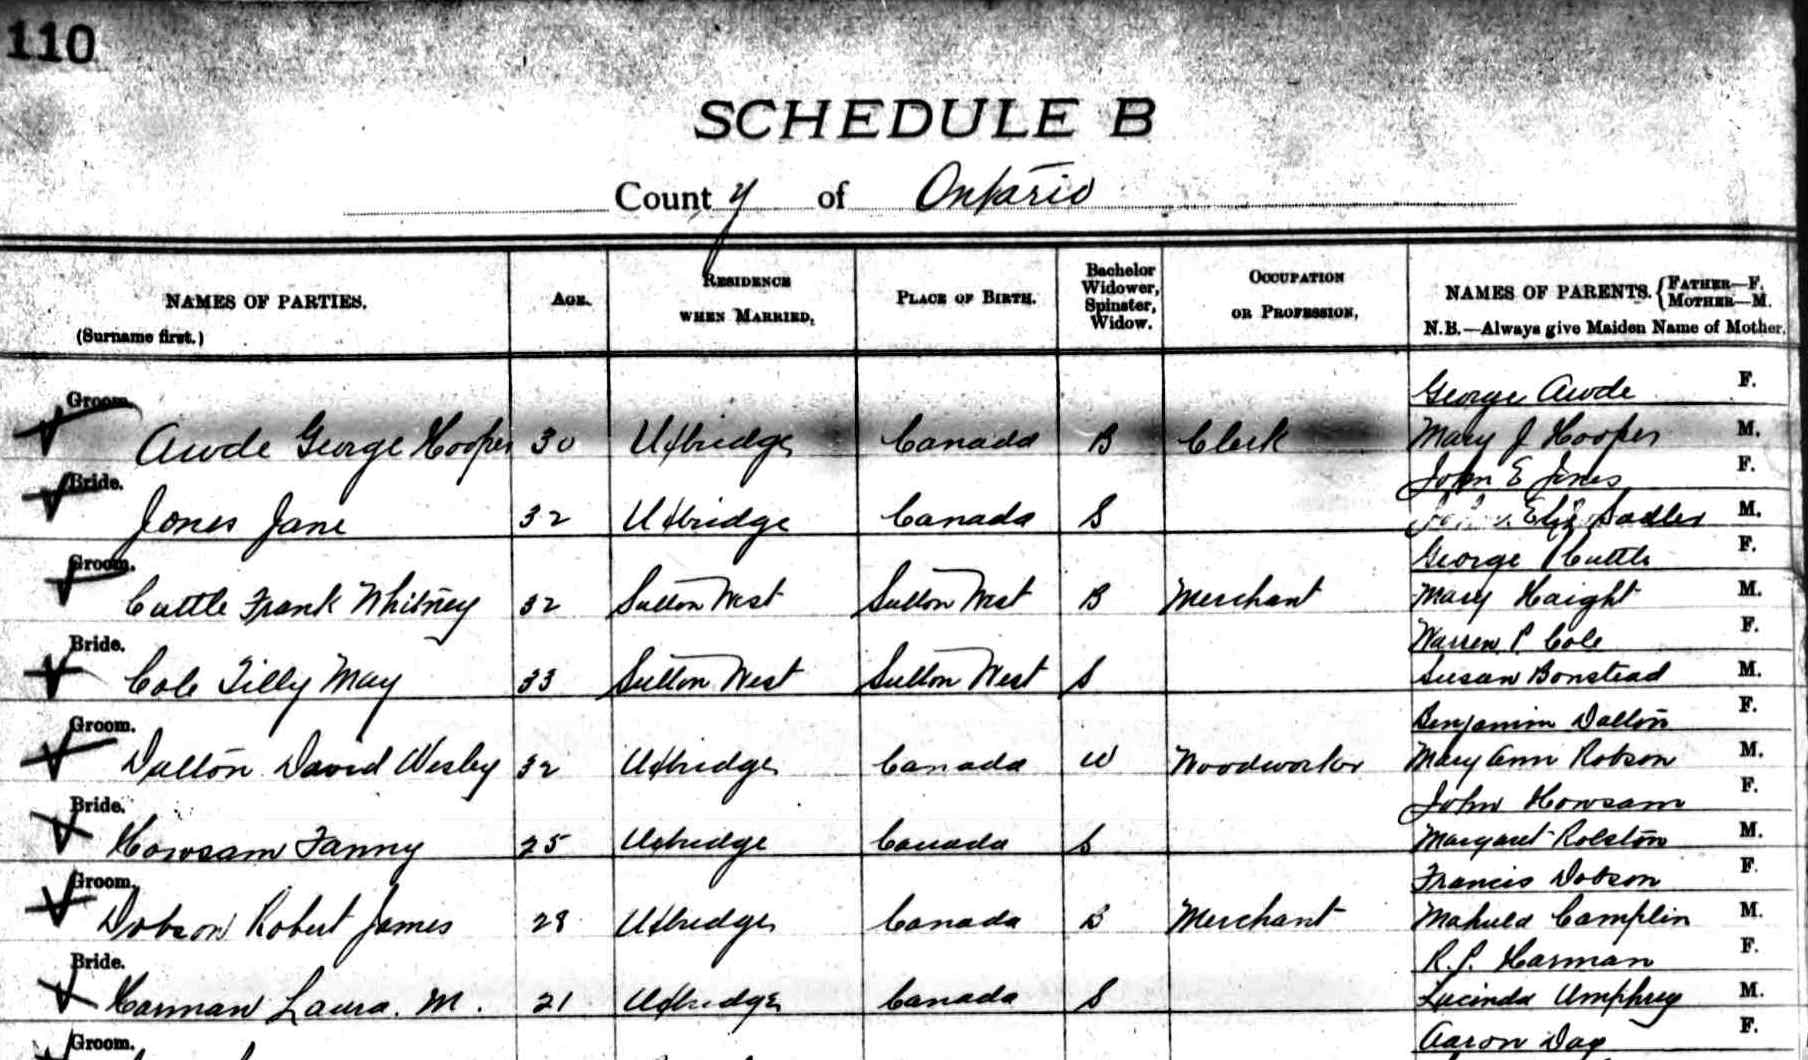 110
SCHEDULE B
County of Ontario
NAMES OF PARTIES. (Surname first.) AGE. RESIDENCE WHEN MARRIED, PLACE OF BIRTH. Bachelor Widower, Spinster, Widow. OCCUPATION OR PROFESSION, NAMES OF PARENTS. {FATHER—F. MOTHER—M. N.B.—Always give Maiden Name of Mother.
George Awde F.
Groom.
Awde George Hooper 30 Uxbridge Canada B Clerk Mary J Hooper M.
John E Jones F.
Bride.
Jones Jane 32 Uxbridge Canada S Eliz Sadler M.
George Cuttle F.
Groom.
Cuttle Frank Whitney 32 Sutton West Sutton West B Merchant Mary Haight M.
Warren P Cole F.
Bride.
Cole Tilly May 33 Sutton West Sutton West S Susan Bonstead M.
Benjamin Dalton F.
Groom.
Dalton David Wesley 32 Uxbridge Canada W Woodworker Mary Ann Robson M.
John Howsam F.
Bride.
Howsam Fanny 25 Uxbridge Canada S Margaret Rolston M.
Francis Dobson F.
Groom.
Dobson Robert James 28 Uxbridge Canada B Merchant Mahula Camplin M.
R.P. Harman F.
Bride.
Harman Laura. M. 21 Uxbridge Canada S Lucinda Umphrey M.
Aaron Day F.
Groom.